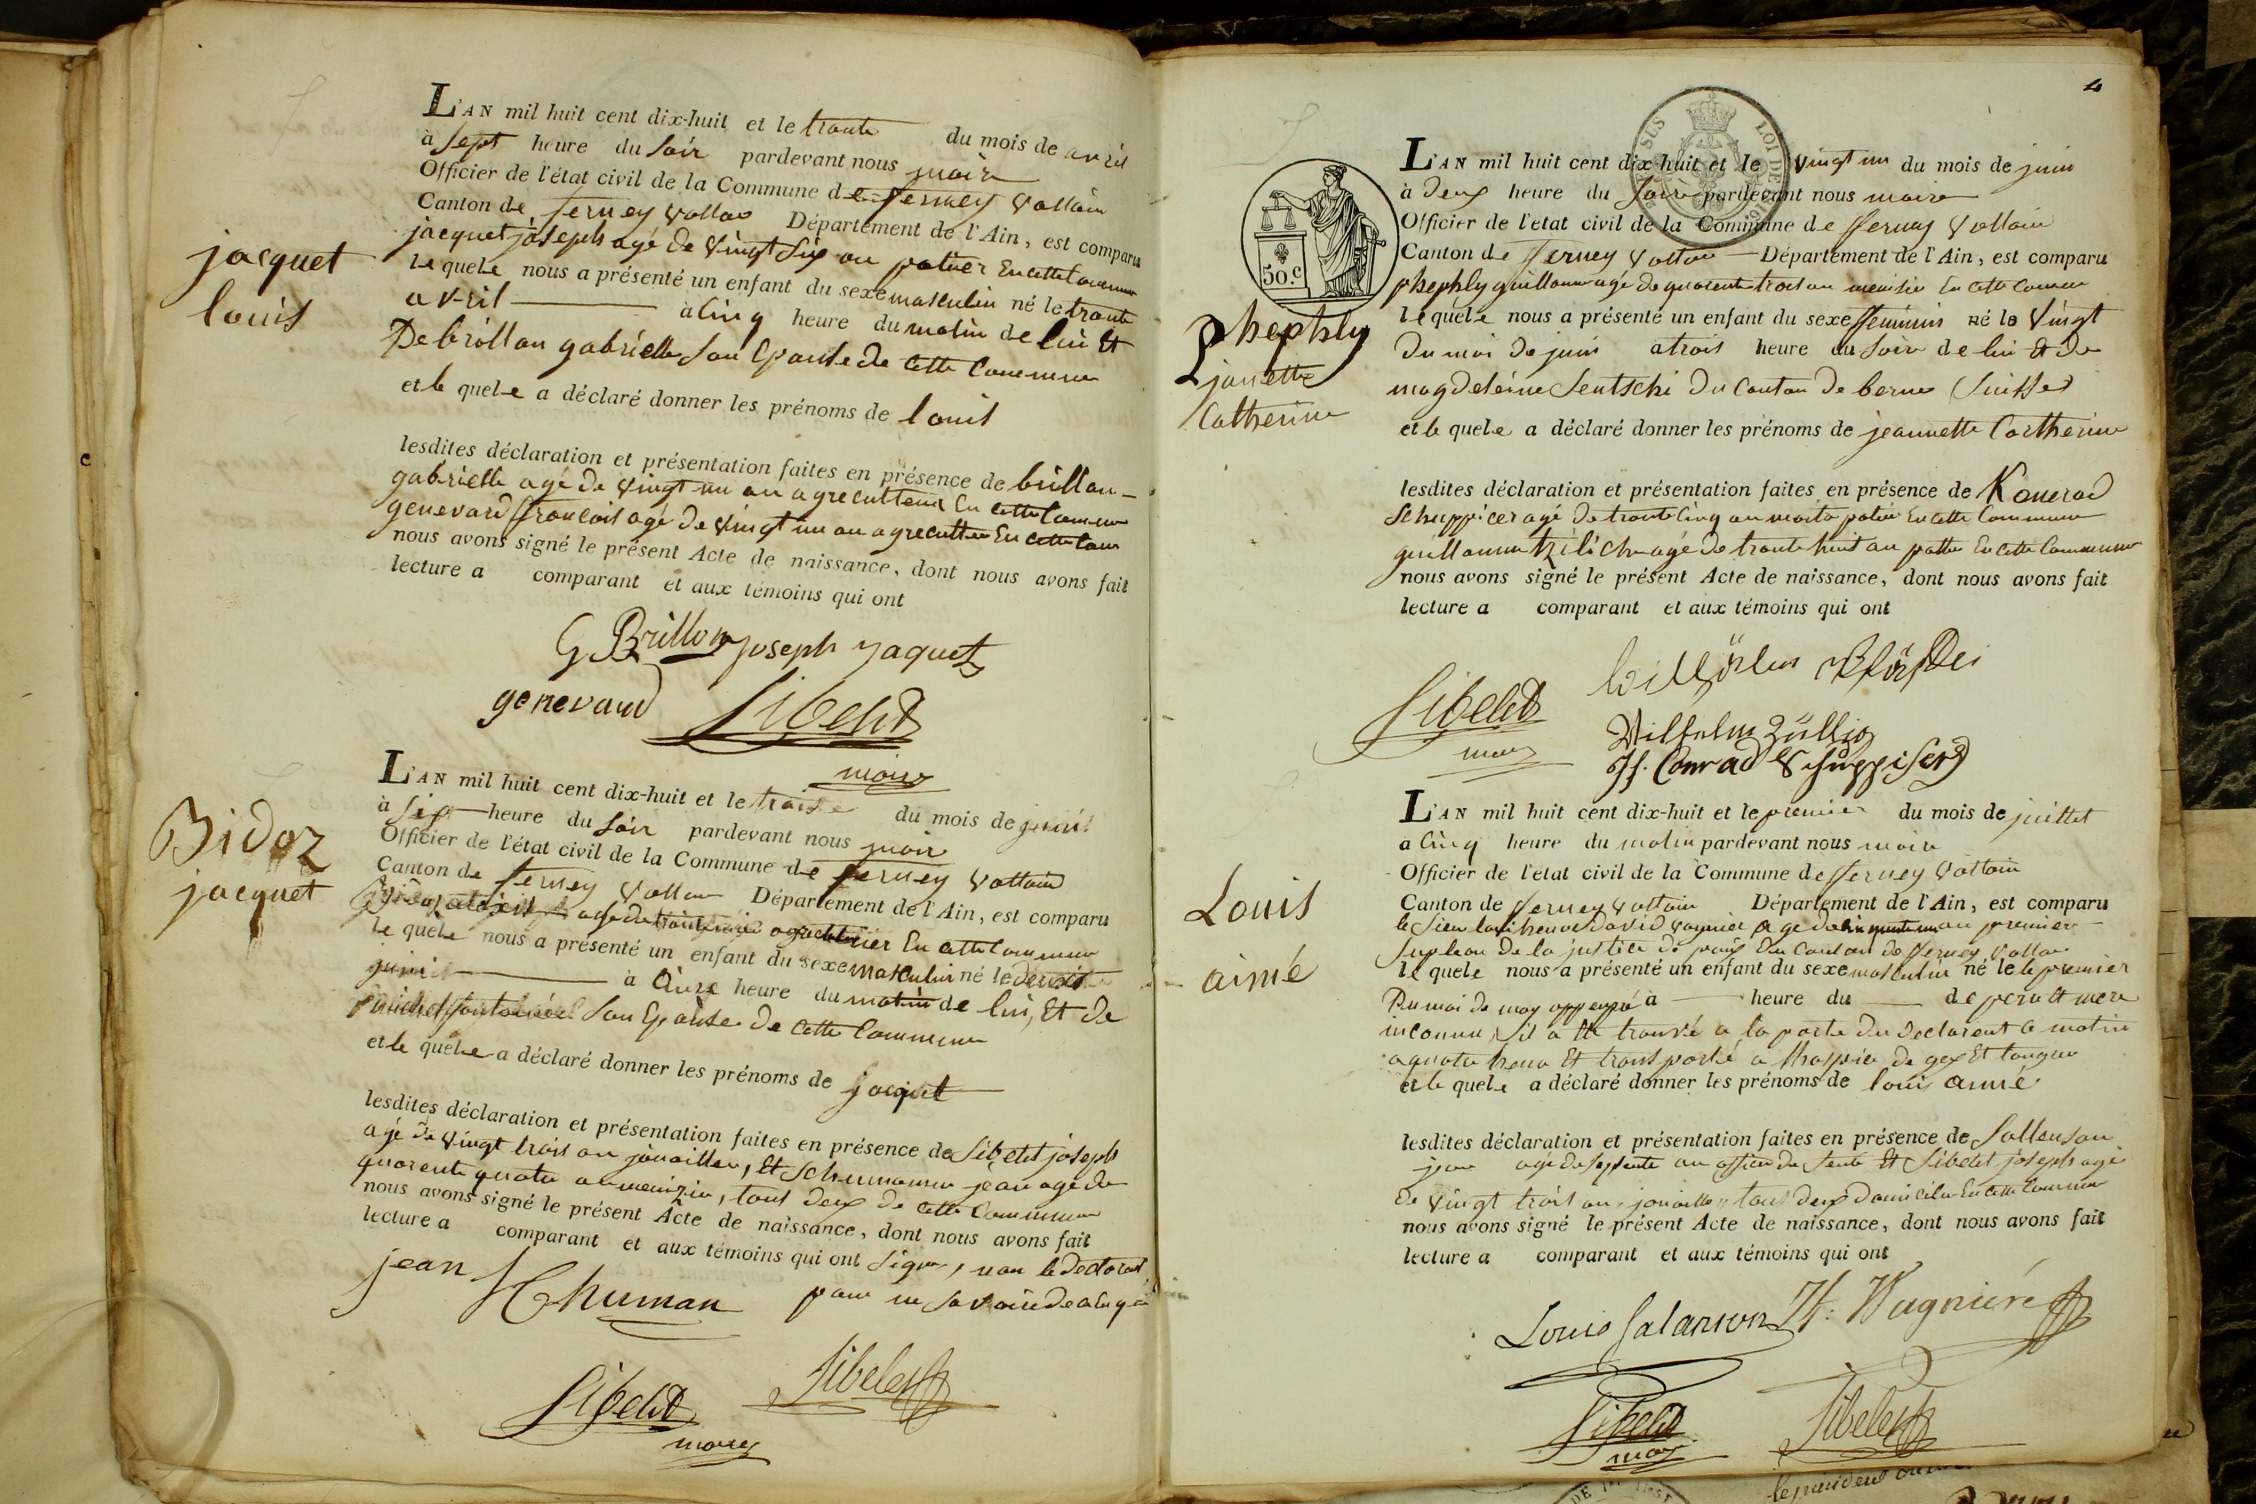 jacquet
louis
L'AN mil huit cent dix-huit et le trante du mois de avril
à sept heure du soir pardevant nous maire
Officier de l'état civil de la Commune de ferney Voltair
Canton de ferney Voltair Département de l'Ain, est comparu
jacquet joseph agé de Vingt Six an potier En cette Commune
le quele nous a présenté un enfant du sexe masculin né le trante
avril à Cinq heure du matin de lui Et
De brillon gabrielle Son Epouse de cette Commune
et le quele a déclaré donner les prénoms de louis
lesdites déclaration et présentation faites en présence de brillon
gabrielle agé de Vingt un an agreculteur En cette Commune
genevard francois agé de Vingt un an agreculteur En cette Com
nous avons signé le présent Acte de naissance, dont nous avons fait
lecture a comparant et aux témoins qui ont
G Brillon joseph jaquet
genevard Sibelet
maire
Bidoz
jacquet
L'AN mil huit cent dix-huit et le treize du mois de
à Six heure du soir pardevant nous mair
Officier de l'état civil de la Commune de ferney Voltair
Canton de ferney Voltair Département de l'Ain, est comparu
agé de En cette Commune
le quele nous a présenté un enfant du sexe masculin né le
à heure du matin de lui, Et de
Son Epouse de cette Commune
et le quele a déclaré donner les prénoms de jacquet
lesdites déclaration et présentation faites en présence de Sibelet joseph
agé de Vingt trois an jouaillier, Et Schumann jean agé de
quarente quatre an menizier, tous deux de cette Commune
nous avons signé le présent Acte de naissance, dont nous avons fait
lecture a comparant et aux témoins qui ont Signé, non le declarant
pour ne savoir de ce enquis
jean Schuman
Sibelet Sibelet
maire
4
SUS LOI DE
50.c
Phephly
jannette
Catherine
L'AN mil huit cent dix-huit et le Vingt un du mois de juin
à deux heure du Soir pardevant nous maire
Officier de l'état civil de la Commune de fferney Voltair
Canton de ferney Voltair Département de l'Ain, est comparu
phephly guillaume agé de quarente trois an menisier En cette Commune
le quele nous a présenté un enfant du sexe ffeminin né le Vingt
Du moi de juin à trois heure du Soir de lui Et de
magdeleine Sentschi Du Canton De berne Suisse
et le quele a déclaré donner les prénoms de jeannette Catherine
lesdites déclaration et présentation faites en présence de Konerad
Schuppicer agé de trante Cinq an potier En cette Commune
guillaume agé de trante huit an potier En cette Commune
nous avons signé le présent Acte de naissance, dont nous avons fait
lecture a comparant et aux témoins qui ont
Sibelet
maire
Wilhelm Züllig
Conrad Schuppiser
Louis
aimé
L'AN mil huit cent dix-huit et le premier du mois de juillet
à Cinq heure du matin pardevant nous maire
Officier de l'état civil de la Commune de fferney Voltair
Canton de ferney Voltair Département de l'Ain, est comparu
le Sieur David agé de an premier
Supleant De la justice de paix Du Canton de fferney Voltair
le quele nous a présenté un enfant du sexe masculin né le le premier
Du moi de may à heure du de pere Et mere
inconnu, il a Eté trouvé a la porte Du Declarent Ce matin
a quatre heure Et transporté a lhospice de gex
et le quele a déclaré donner les prénoms de loui aimé
lesdites déclaration et présentation faites en présence de Sallenson
agé de Septente an de Et Sibelet joseph agé
De Vingt trois an, jouaillier, tous deux Domicilie En cette Commune
nous avons signé le présent Acte de naissance, dont nous avons fait
lecture a comparant et aux témoins qui ont
Louis Salanson H. Wagniere
Sibelet Sibelet
maire